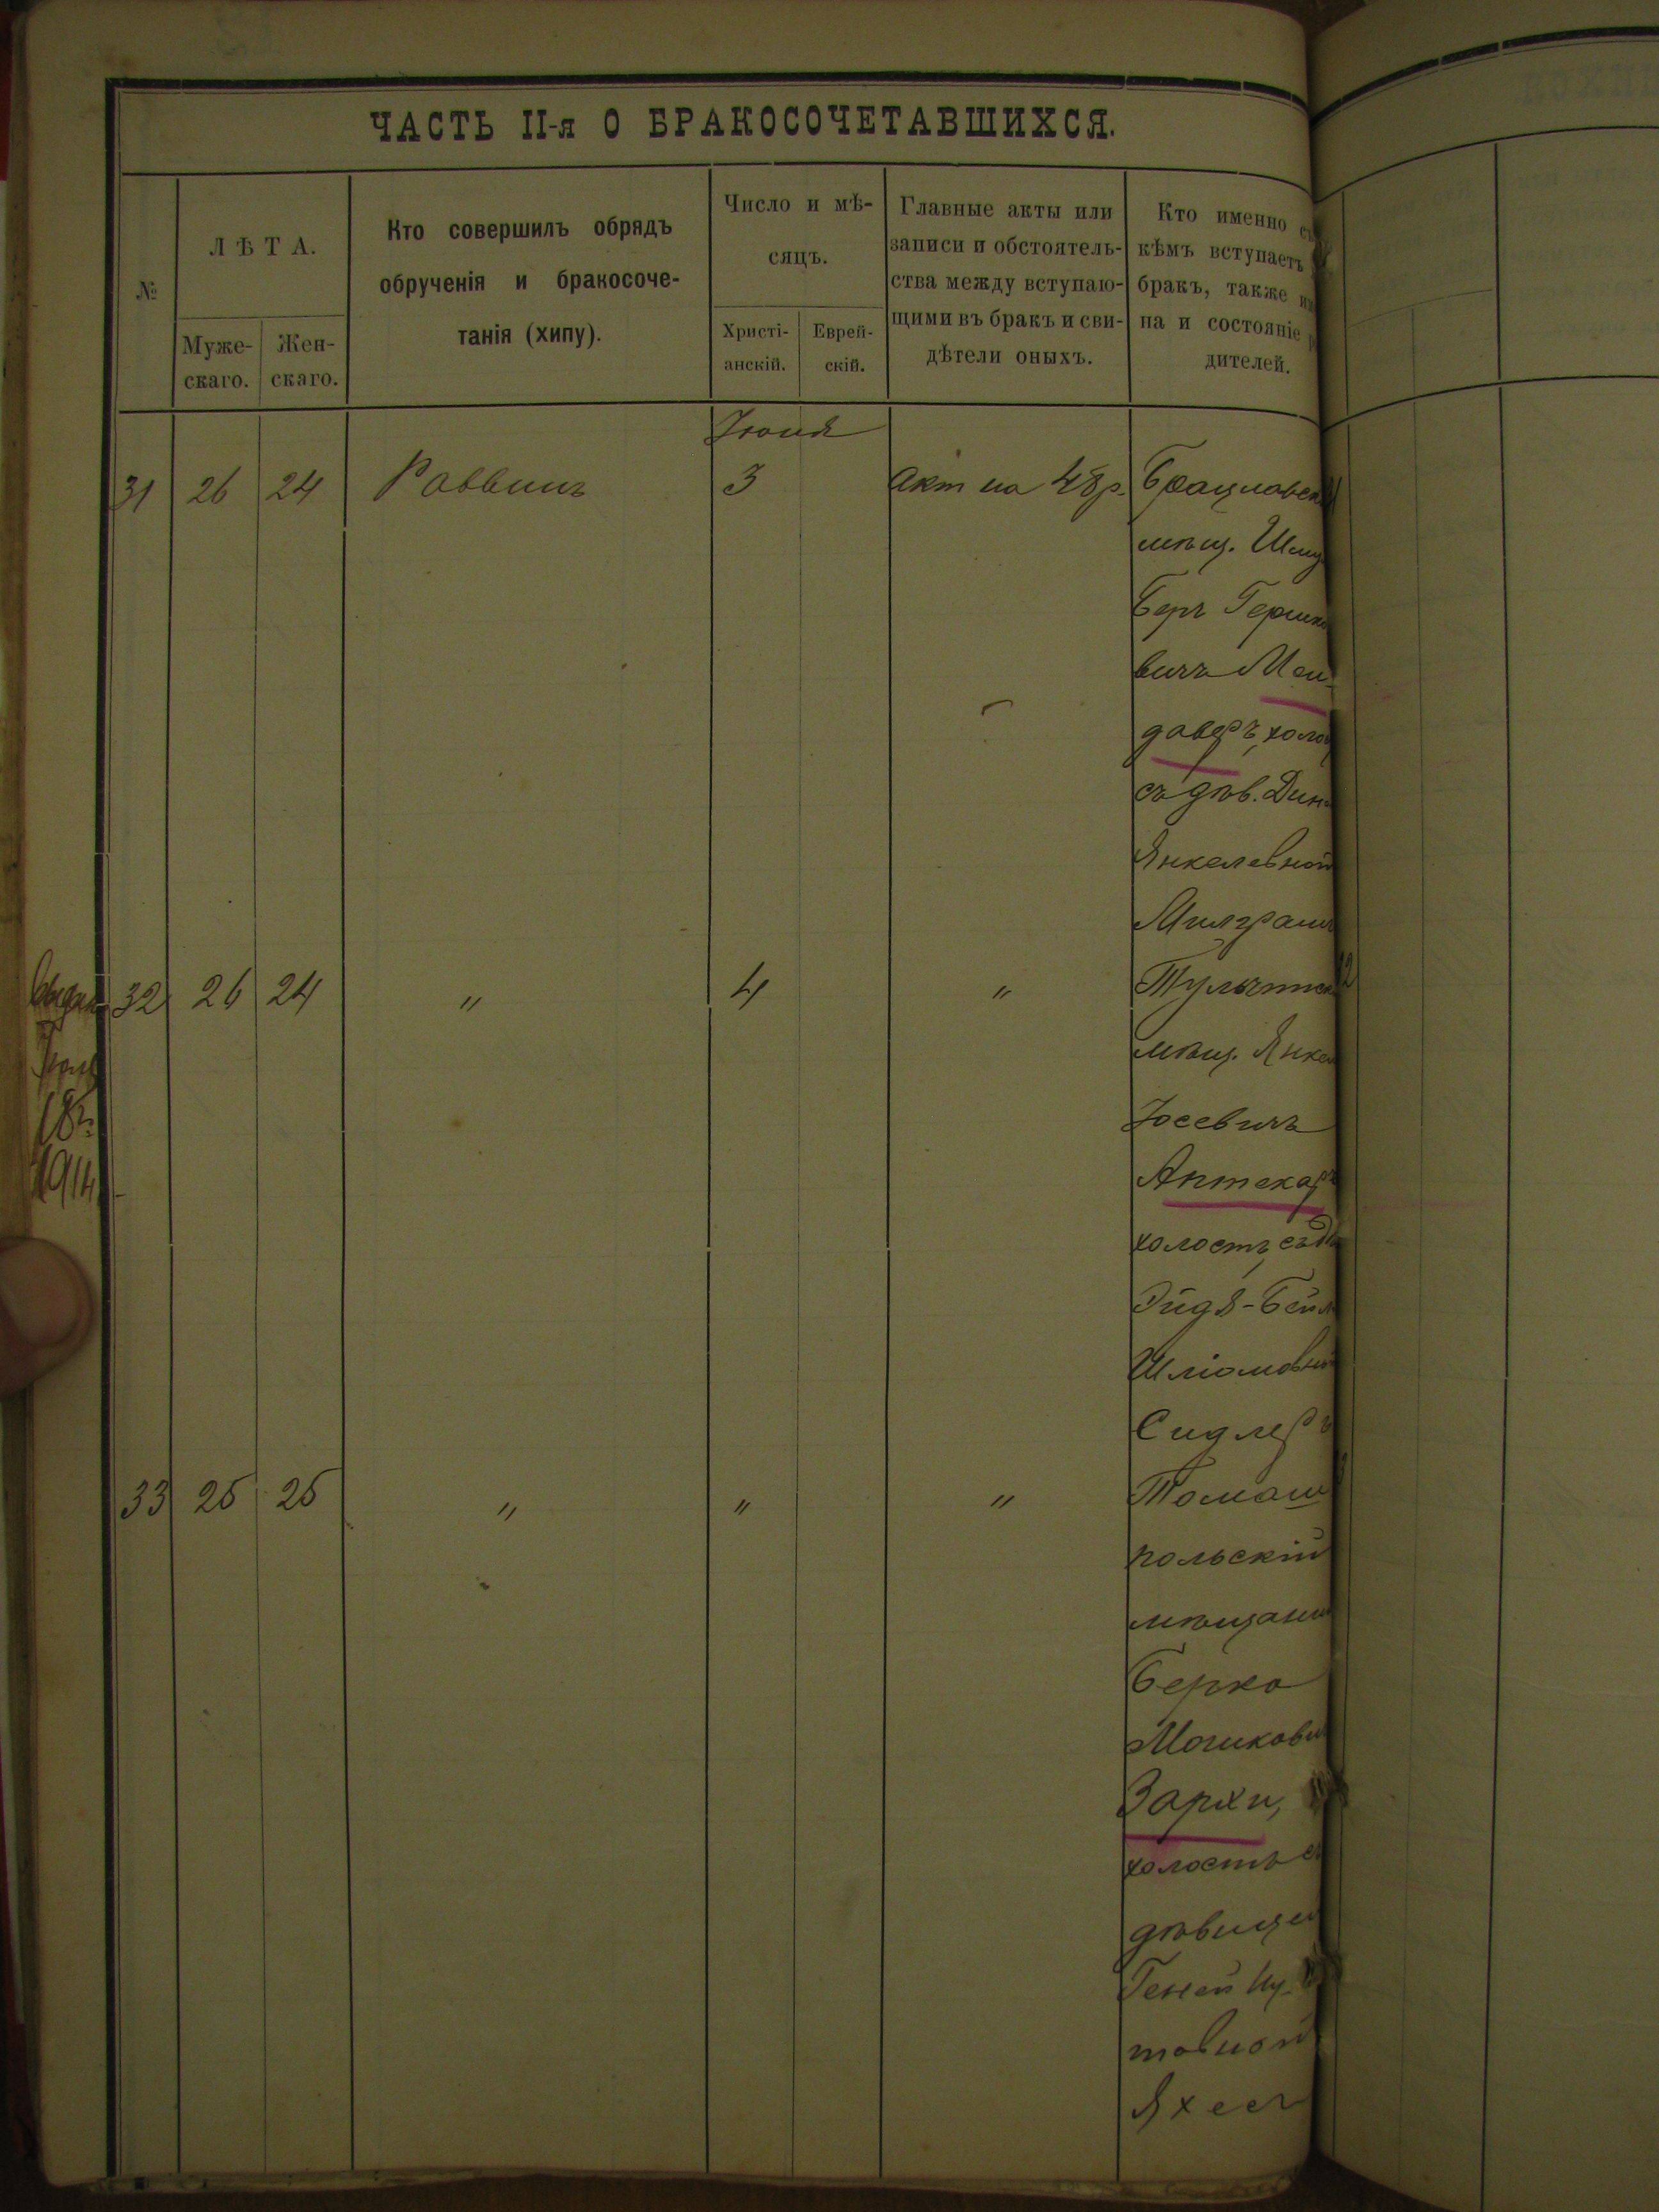 ЧАСТЬ II-я О БРАКОСОЧЕТАВШИХСЯ.
№
ЛѢТА.
Муже-
скаго.
Жен-
скаго.
Кто совершилъ обрядъ
обрученія и бракосоче-
танія (хипу).
Число и мѣ-
сяцъ.
Христі-
анскій.
Еврей-
скій.
Главные акты или
записи и обстоятель-
ства между вступаю-
щими въ бракъ и сви-
дѣтели оныхъ.
Кто именно съ
кѣмъ вступаетъ
бракъ, также
на и состояніе
дителей.
Іюня
31 26 24 Раввинъ 3 Акт на 48 р. Брацлавск
мѣщ.
Беръ Гершко
вичъ Мен-
даверъ, холос
съ дѣв. Дин
Янкелевной
Милграмъ
32 26 24 " 4 " Тульчинск
мѣщ. Янкел
Іосевичъ
Аптекарь
холостъ, съ
Эйдя-Бейл
Шліомовной
Сидлеръ
Іюня
18
1914
33 25 25 " " " Томаш
польскій
мѣщанин
Берко
Мошкови
Зархи,
холостъ съ
дѣвицей
Геней
товной